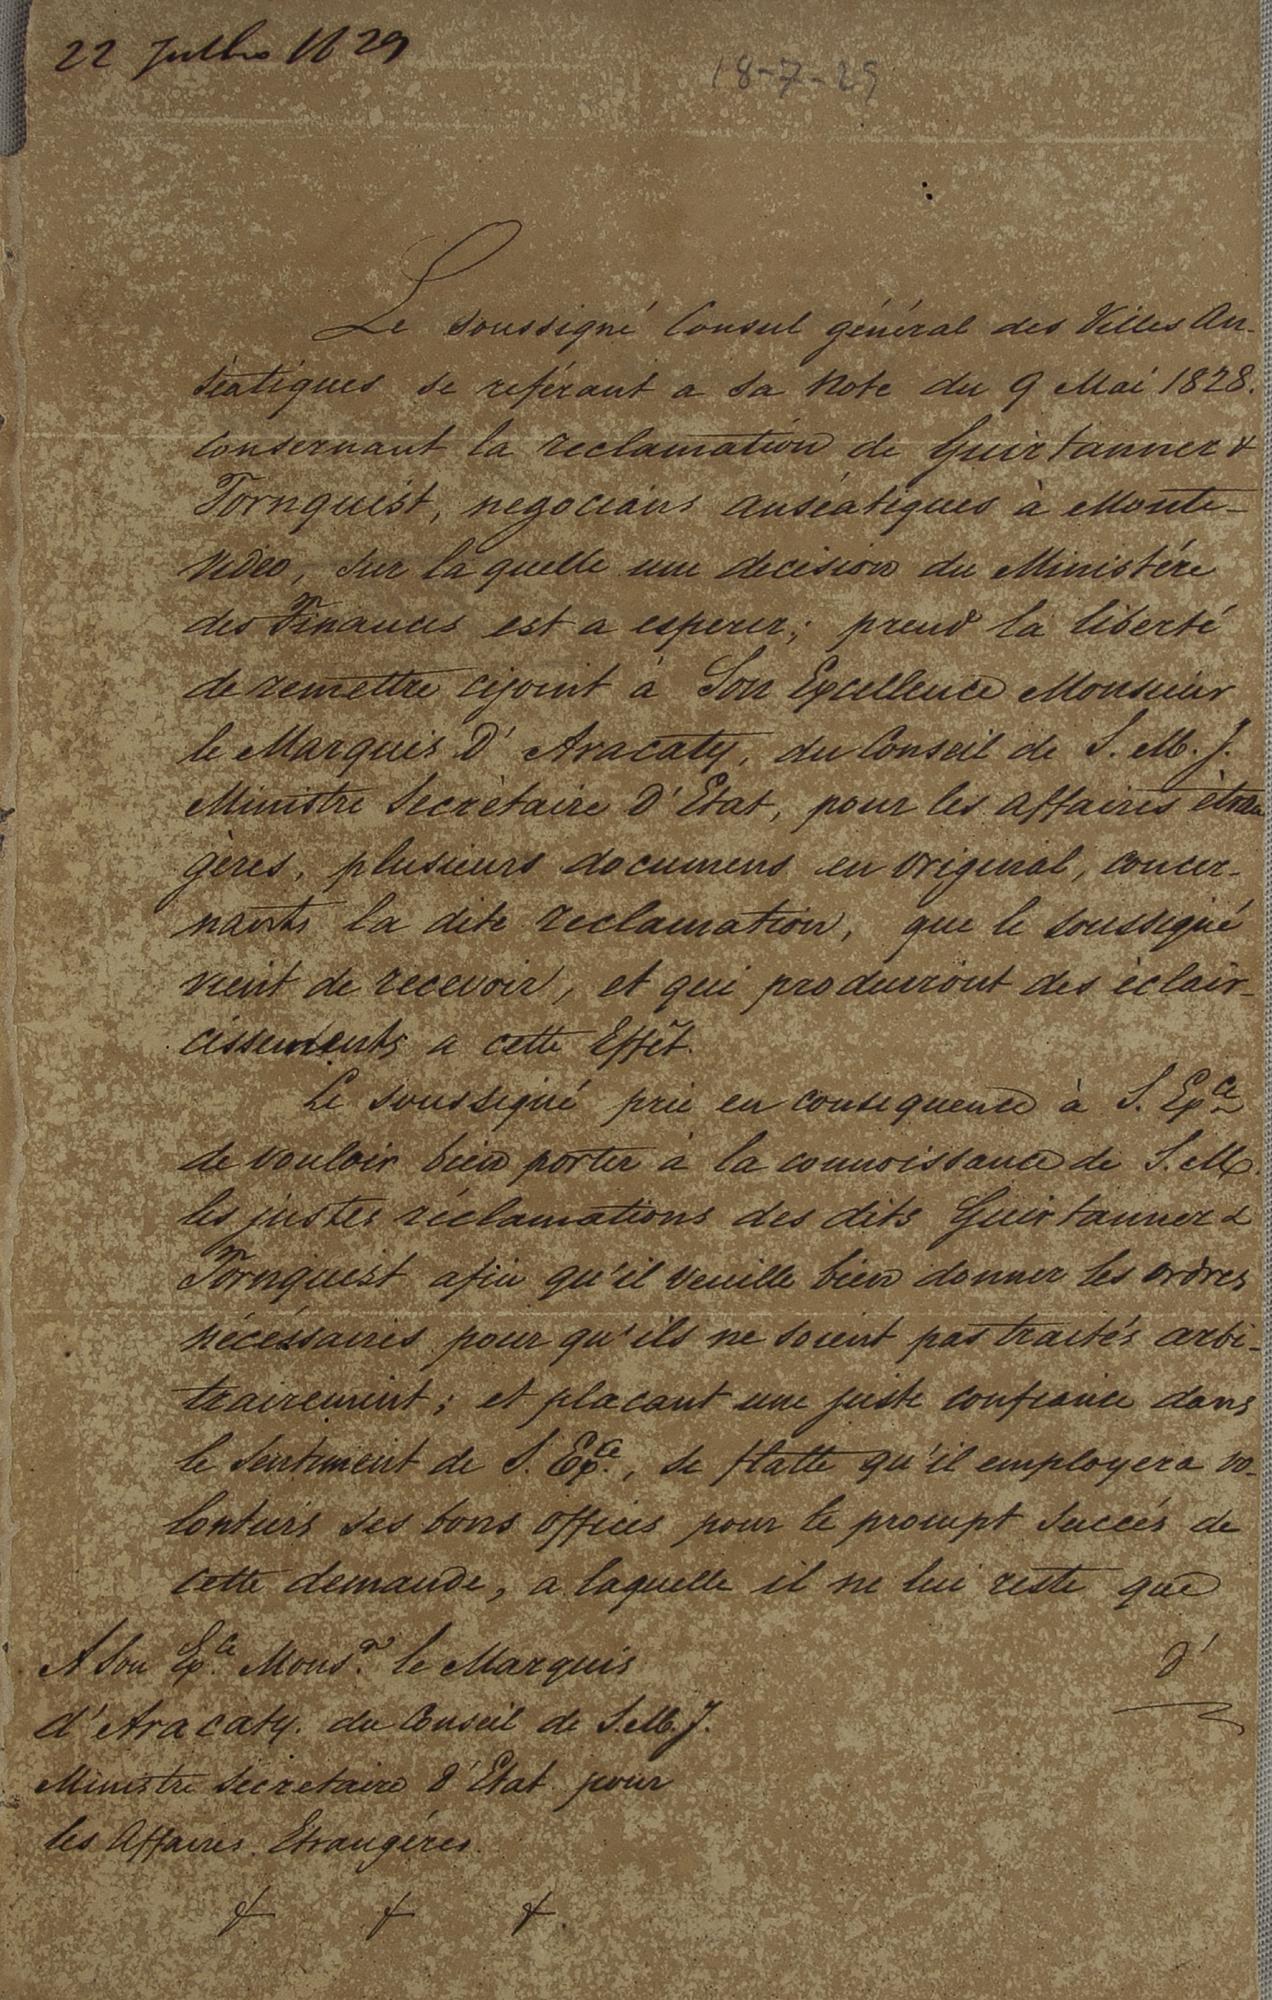 22 Julho 1829
18-7-29
Le soussigné Consul général des Villes An-
séatiques se reférant a sa Note du 9 Mai 1828.
consernant la reclamation de Guirtanner &
Tornquist, negocians anséatiques à Monte-
video, sur laquelle une decision du Ministére
des Finances est a esperer; prend la liberté
de remettre cijoint à Son Excellence Monsieur
le Marquis D'Aracaty, du Conseil de S. M. J.
Ministre Secrètaire D'Etat, pour les affaires étran
gères, plusieurs documens en original, concer-
nants la dite reclamation, que le soussigné
vient de recevoir, et qui produiront des éclair-
cissements a cette Effêt.
Le soussigné prie en consequence à S. Exce
de vouloir bien porter à la connoissance de S. M.
les justes réclamations des dits Guirtanner &
Tornquist afin qu'il veuille bien donner les ordres
nécéssaires pour qu'ils ne soient pas traités arbi-
trairement; et placant une juste confiance dans
le sentiment de S. Exce., se flatte qu'il employera vo-
lontiers ses bons offices pour le prompt succés de
cette demande, a laquelle il ne lui reste que
d'
A Son Exce. Monsr. le Marquis
d'Aracaty. du Conseil de S. M. J.
Ministre secretaire d'Etat pour
les Affaires Etrangéres.